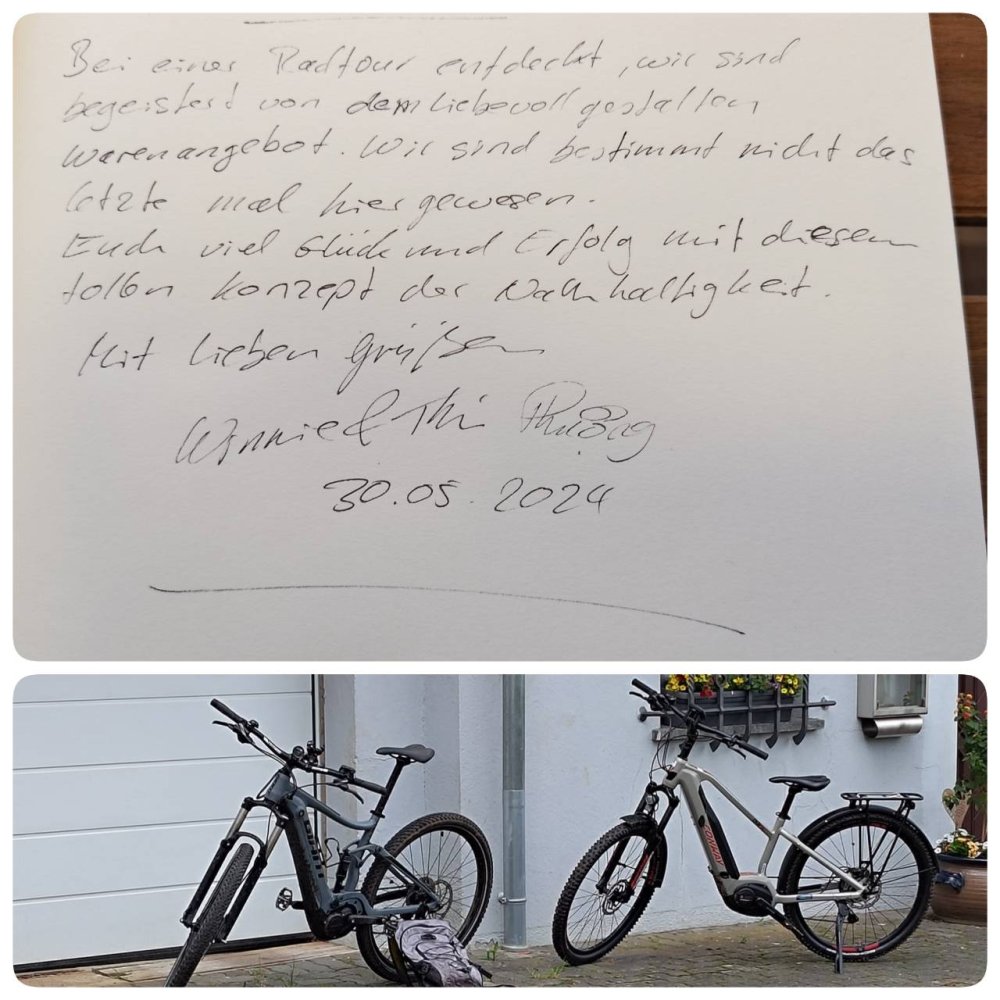 Bei einer Radtour entdeckt, wir sind
begeistert von dem liebevoll gestalten
Warenangebot. Wir sind bestimmt nicht das
letzte mal hier gewesen.
Euch viel Glück und Erfolg mit diesem
tollen Konzept der Nachhaltigkeit.
Mit lieben Grüßen
Winnie &
30.05.2024
CONWAY